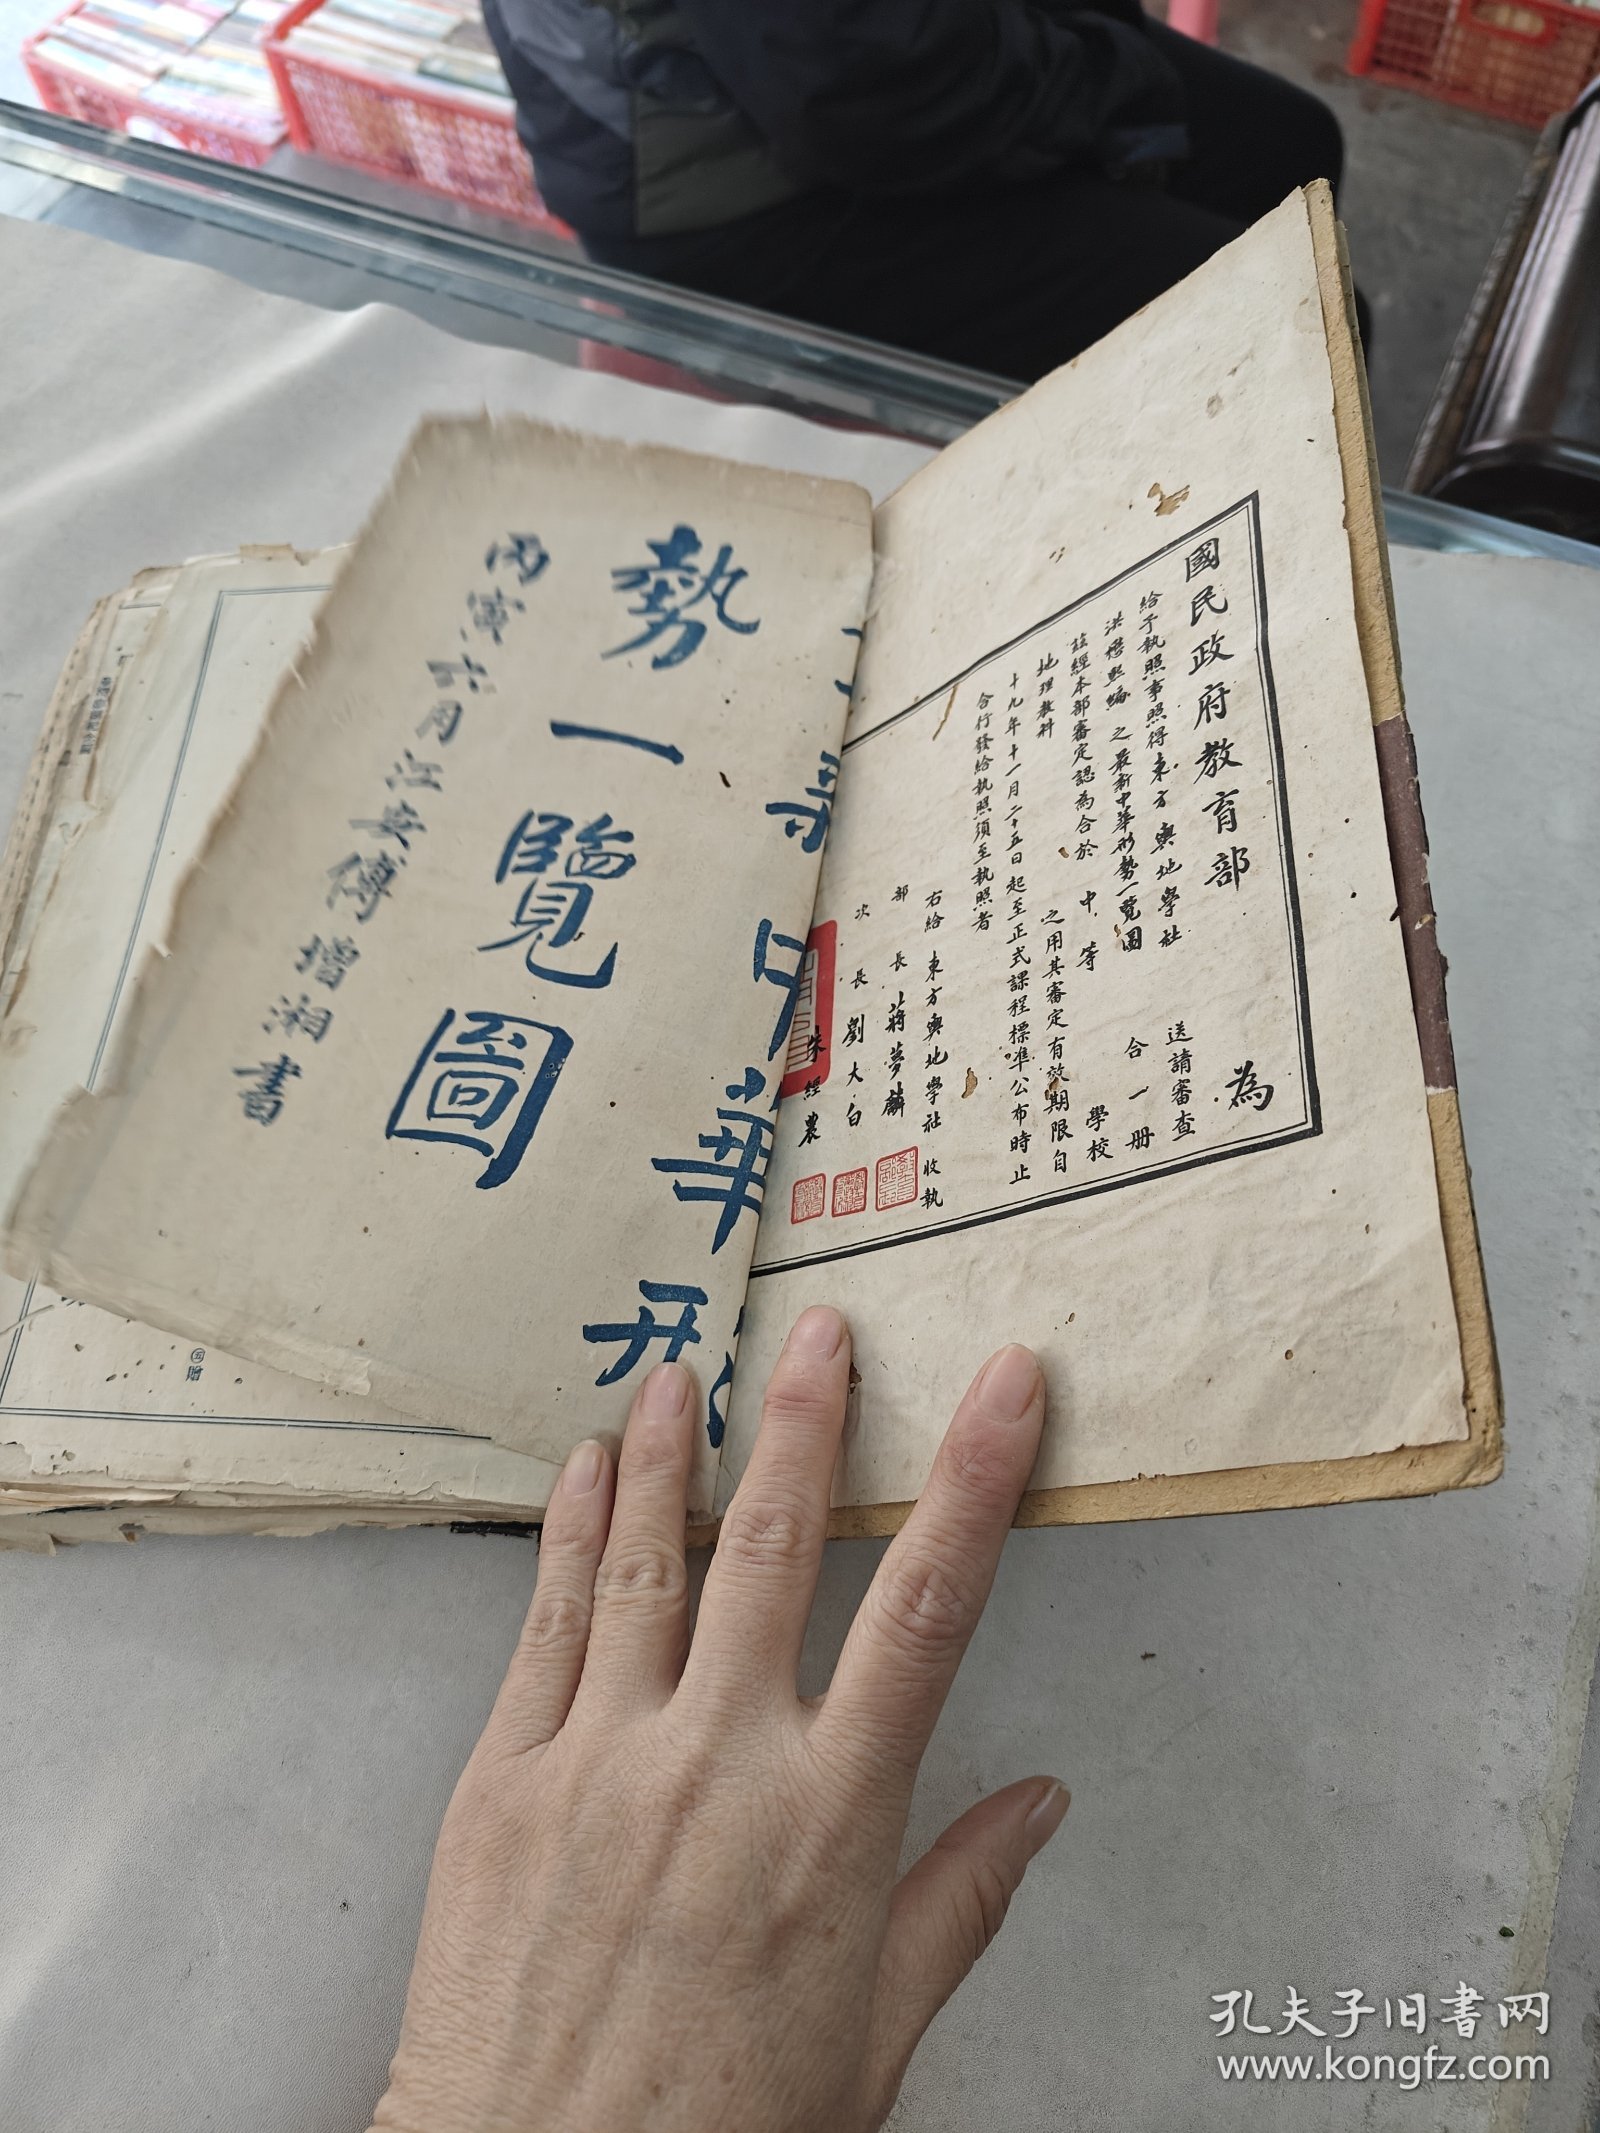 國民政府教育部 為
給予執照事照得東方輿地學社 送請審查
洪懋熙編 之最新中華形勢一覽圖 合一冊
茲經本部審定認為合於 中等 學校
地理教科 之用其審定有效期限自
十九年十一月二十五日起至正式課程標準公布時止
合行發給執照須至執照者
右給 東方輿地學社 收執
部長 蔣夢麟
次長 劉大白
朱經農
中華形
勢一覽圖
丙寅六月江安傅增湘書
孔夫子旧书网
www.kongfz.com